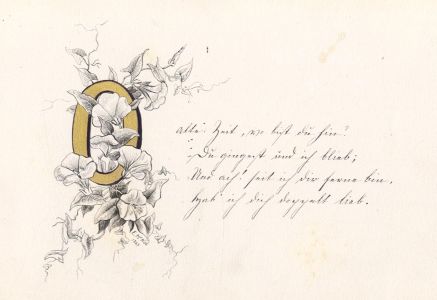 O alte Zeit, wo bist du hin?
Du gingest und ich blieb;
Und ach! seit ich dir ferne bin,
Hab' ich dich doppelt lieb.